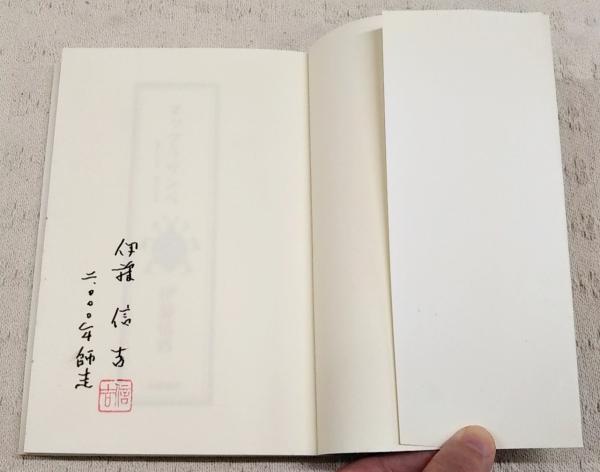 伊藤信吉
二〇〇〇年師走
信吉